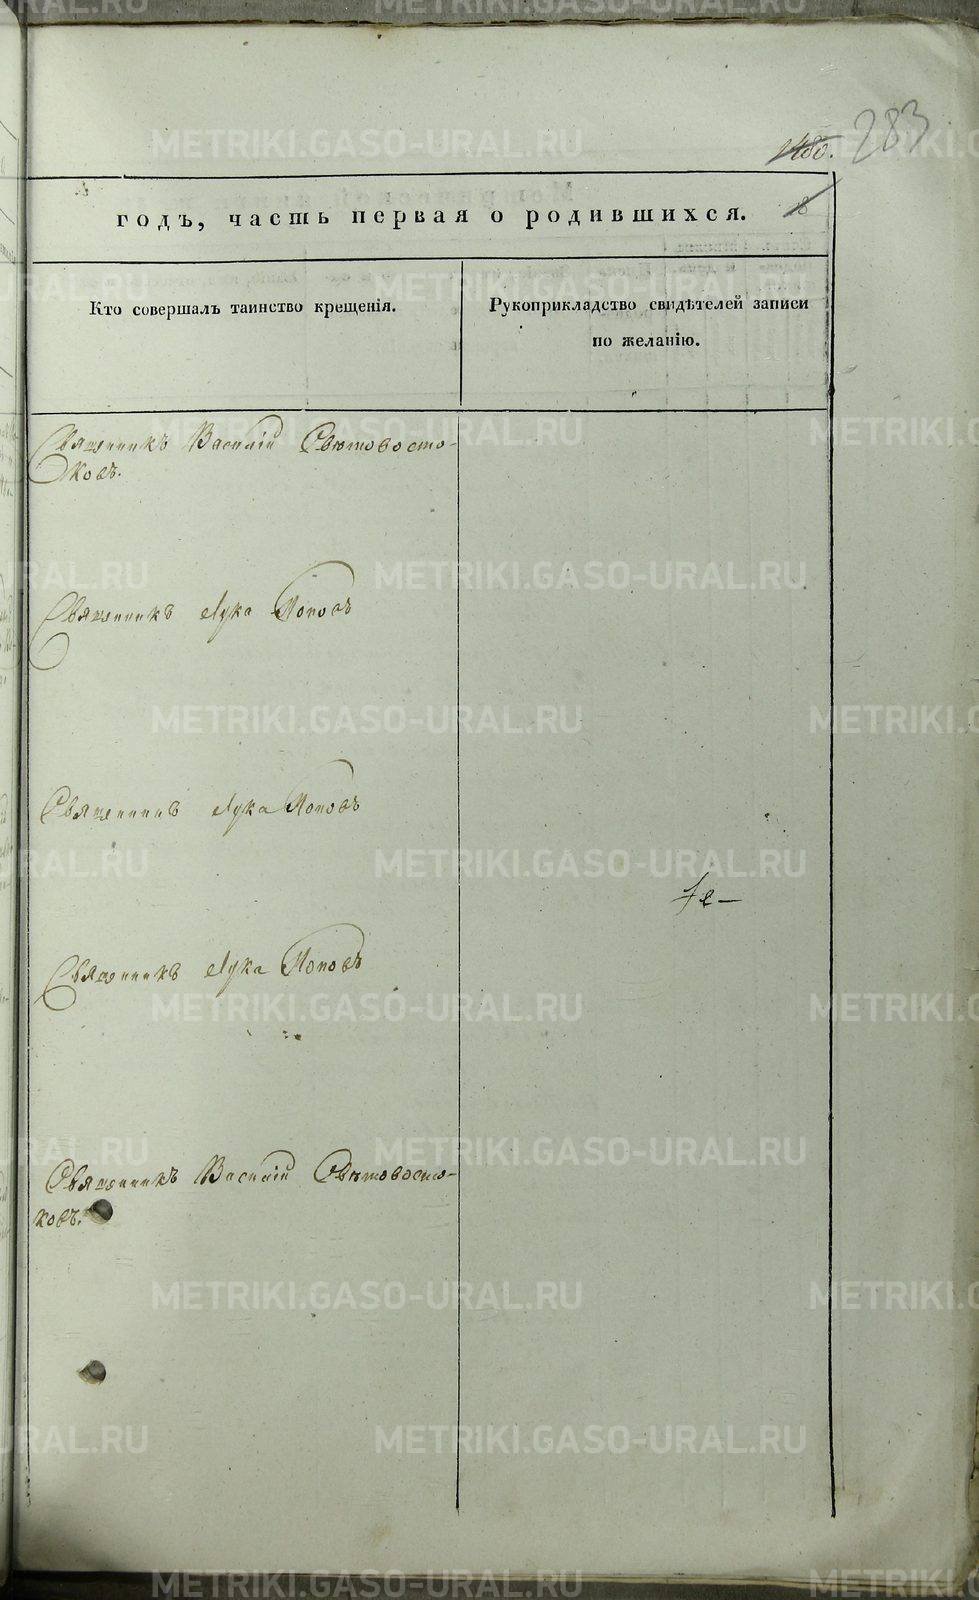 283
1480.
годъ, часть первая о родившихся.
18
Кто совершалъ таинство крещенія.
Рукоприкладство свидѣтелей записи
по желанію.
Священникъ Василій Свѣтовосто-
ковъ.
Священникъ Лука Поповъ
Священникъ Лука Поповъ
Священникъ Лука Поповъ
Священникъ Василій Свѣтовосто-
ковъ.
METRIKI.GASO-URAL.RU